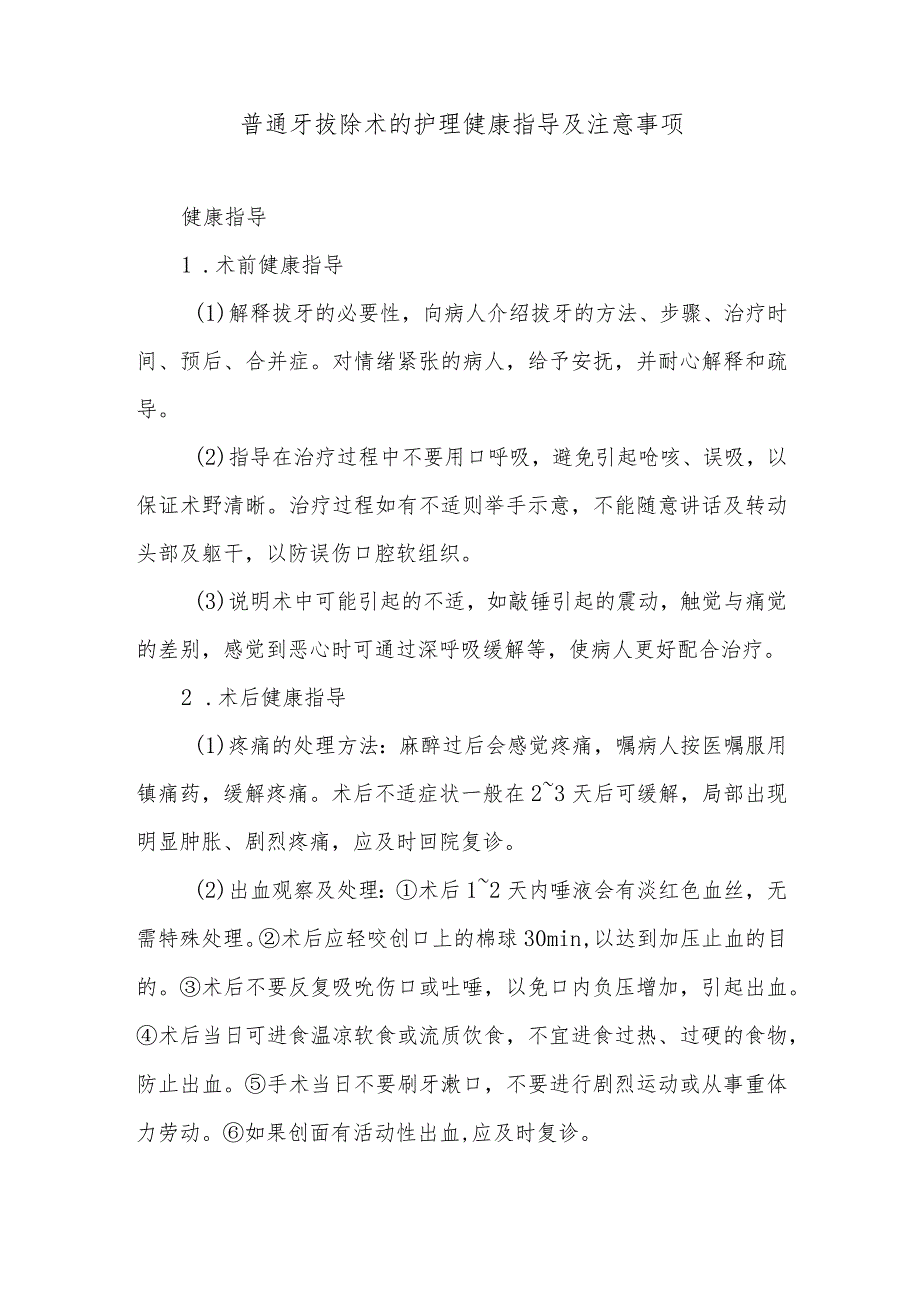 普通牙拔除术的护理健康指导及注意事项
健康指导
1 .术前健康指导
(1)解释拔牙的必要性，向病人介绍拔牙的方法、步骤、治疗时
间、预后、合并症。对情绪紧张的病人，给予安抚，并耐心解释和疏
导。
(2)指导在治疗过程中不要用口呼吸，避免引起呛咳、误吸，以
保证术野清晰。治疗过程如有不适则举手示意，不能随意讲话及转动
头部及躯干，以防误伤口腔软组织。
(3)说明术中可能引起的不适，如敲锤引起的震动，触觉与痛觉
的差别，感觉到恶心时可通过深呼吸缓解等，使病人更好配合治疗。
2 .术后健康指导
(1)疼痛的处理方法：麻醉过后会感觉疼痛，嘱病人按医嘱服用
镇痛药，缓解疼痛。术后不适症状一般在2~3天后可缓解，局部出现
明显肿胀、剧烈疼痛，应及时回院复诊。
(2)出血观察及处理：①术后1~2天内唾液会有淡红色血丝，无
需特殊处理。②术后应轻咬创口上的棉球30min,以达到加压止血的目
的。③术后不要反复吸吮伤口或吐唾，以免口内负压增加，引起出血。
④术后当日可进食温凉软食或流质饮食，不宜进食过热、过硬的食物，
防止出血。⑤手术当日不要刷牙漱口，不要进行剧烈运动或从事重体
力劳动。⑥如果创面有活动性出血,应及时复诊。